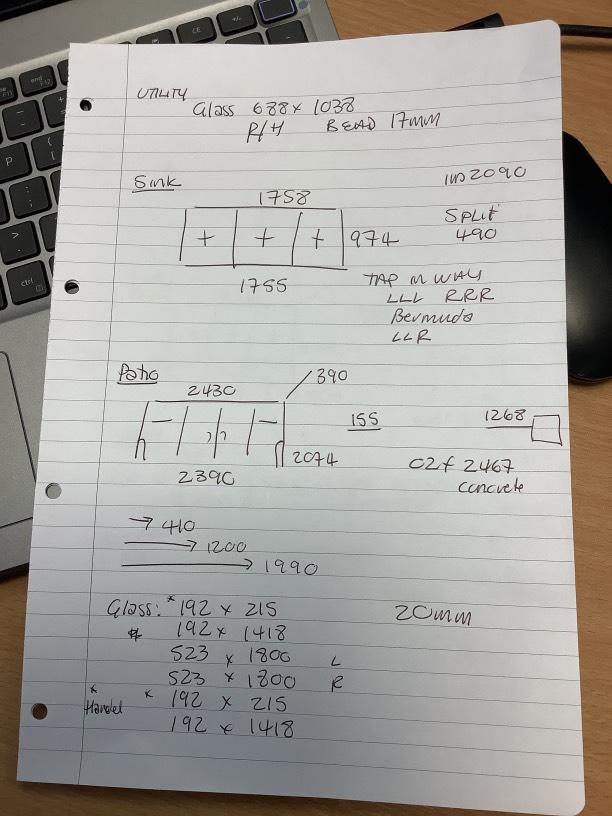 UTILITY
Glass 688 x 1038
P/H BEAD 17mm
Sink
2090
1758
SPLIT
490
+ + + 974
1755
TAP WALL
LLL RRR
Bermuda
LLR
Patio
390
2430
155
1268
2074
2390
02f 2467
concrete
→ 410
→ 1200
→ 1990
Glass: * 192 x 215
20mm
192 x 1418
523 x 1800 L
523 x 1800 R
* * 192 x 215
Handel
192 x 1418
end
F11
F12
CE
+/-
P
ctrl